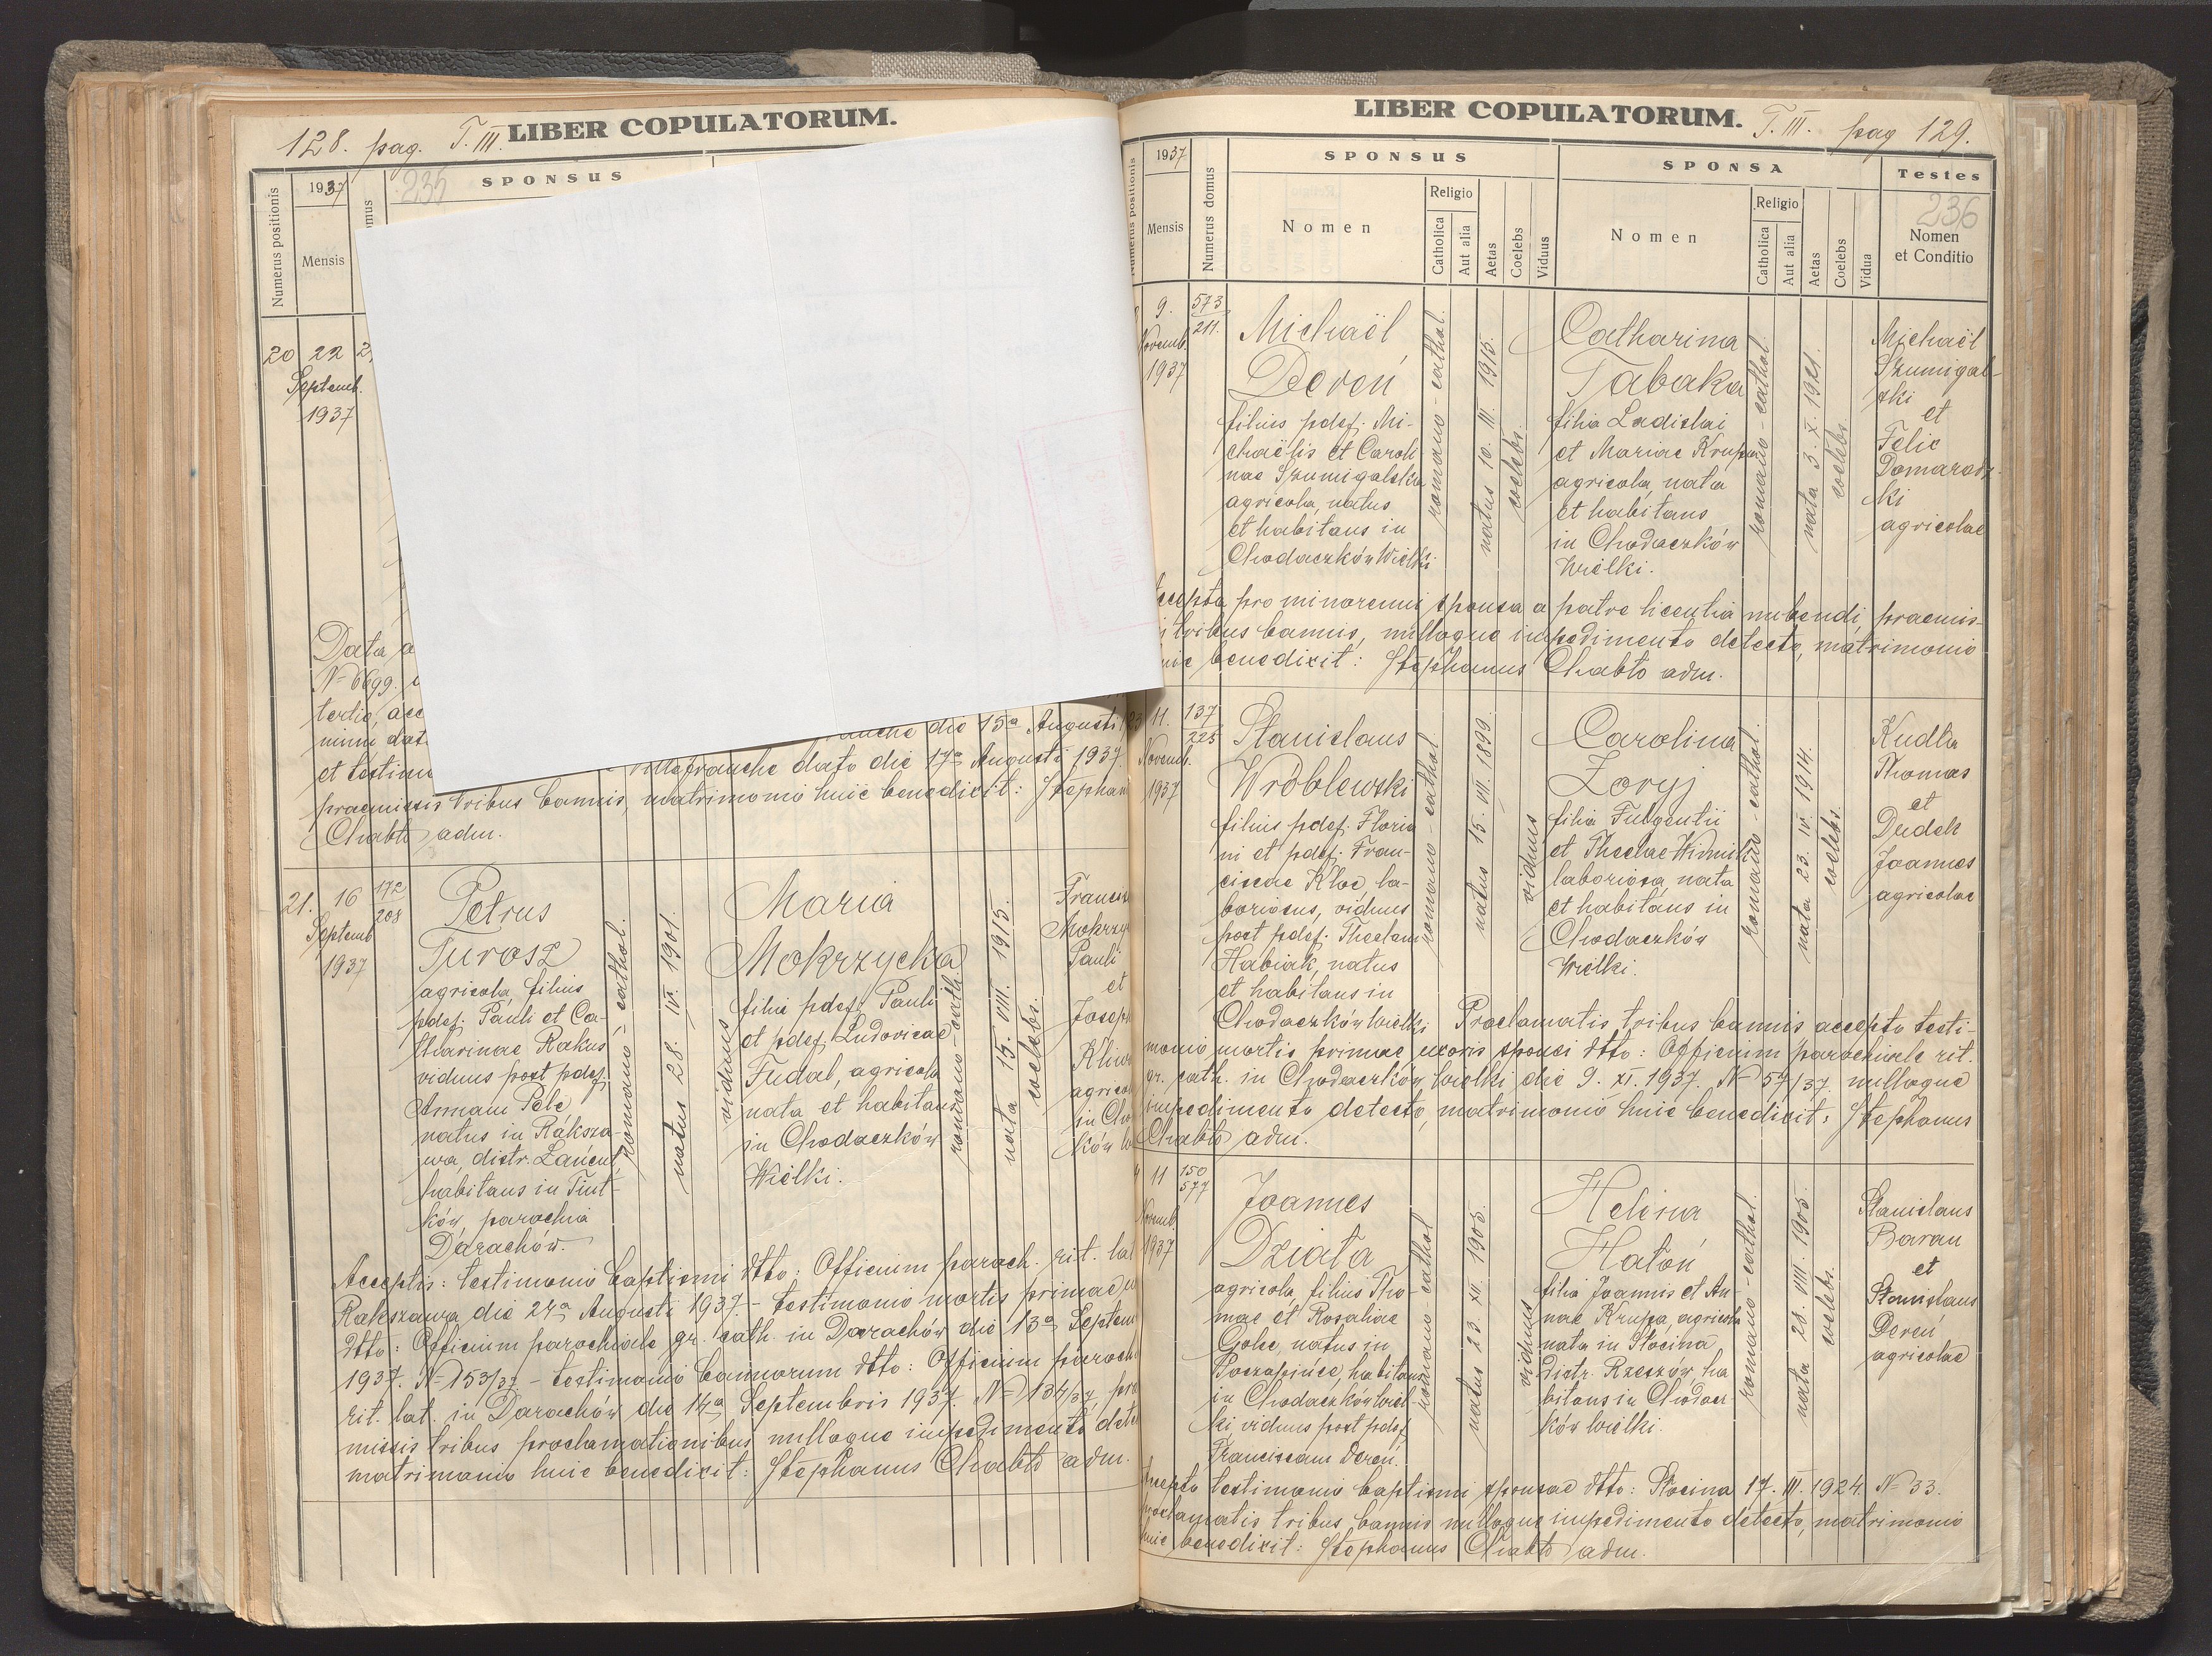 128. pag. T. III. LIBER COPULATORUM.
Numerus positionis
1937
Mensis
235
SPONSUS
20 22
Septemb.
1937
Data a
No 6699.
tertio, acc
et testimo
die 15a Augusti
dato die 17a Augusti 1937.
praemissis tribus bannis, matrimonio huic benedixit: Stephan
Chabło adm.
21. 16 172
208
Septemb
1937
Petrus
Turosz
agricola, filius
pdef. Pauli et Ca-
tharinae Rakus
viduus post pdef.
Annam Pelc,
natus in Raksza-
wa, distr. Łańcut,
habitans in Tiut-
ków, parochia
Darachów.
romano-cathol.
natus 28. IV. 1901.
viduus
Maria
Mokrzycka
filia pdef. Pauli
et pdef. Ludovicae
Fudal, agricola
nata et habitans
in Chodaczków
Wielki.
romano-cath.
nata 15. VIII. 1915.
coelebs.
Mokrzy
Pauli
et
Joseph
agricol
in Cho
ków W
Acceptis: testimonio baptismi dtto: Officium paroch. rit. lat
Rakszawa die 24a Augusti 1937 - testimonio mortis primae
dtto: Officium parochiale gr. cath. in Darachów die 13a Septem
1937. No 153/37 - testimonio bannorum dtto: Officium paroch
rit. lat. in Darachów die 14a Septembris 1937. No 134/37, pro
missis tribus proclamationibus nulloque impedimento dete
matrimonio huic benedixit: Stephanus Chabło adm.
LIBER COPULATORUM. T. III. pag 129.
Numerus positionis
1937
Mensis
Numerus domus
SPONSUS
Nomen
Religio
Catholica
Aut alia
Aetas
Coelebs
Viduus
SPONSA
Nomen
Religio
Catholica
Aut alia
Aetas
Coelebs
Vidua
Testes
236
Nomen
et Conditio
9. 573
211.
Novemb.
1937
Michaël
Dereń
filius pdef. Mi-
chaëlis et Caroli
nae Szumigalska
agricola, natus
et habitans in
Chodaczków Wielki.
romano-cathol.
natus 10. III. 1915.
coelebs.
Catharina
Tabaka
filia Ladislai
et Mariae Krupa
agricola, nata
et habitans
in Chodaczków
Wielki.
romano-cathol.
nata 3. X. 1921.
coelebs.
Michaël
Szumigal-
ski
et
Felix
Domaradz-
ki
agricolae
ccepta pro minorenni sponsa a patre licentia nubendi, praemis-
tribus bannis, nulloque impedimento detecto, matrimonio
huic benedixit: Stephanus Chabło adm.
23 11. 137
225
Novemb.
1937
Stanislaus
Wróblewski
filius pdef. Floria
ni et pdef. Fran-
ciscae Kloc, la-
boriosus, viduus
post pdef. Theclam
Habiak, natus
et habitans in
Chodaczków Wielki
romano-cathol.
natus 15. VII. 1899
viduus
Carolina
Zoryj
filia Fulgentii
et Theclae
laboriosa, nata
et habitans in
Chodaczków
Wielki.
romano-cathol.
nata 23. IV. 1914.
coelebs.
Kudła
Thomas
et
Dudek
Joannes
agricolae
Proclamatis tribus bannis accepto testi-
monio mortis primae uxoris sponsi dtto: Officium parochiale rit.
gr. cath. in Chodaczków Wielki die 9. XI. 1937. No 57/37. nulloque
impedimento detecto, matrimonio huic benedixit: Stephanus
Chabło adm.
11 150
577
Novemb.
1937
Joannes
Działa
agricola, filius Tho-
mae et Rosaliae
Golec, natus in
habitans
in Chodaczków Wiel-
ki viduus post pdef.
Franciscam Dereń.
romano-cathol
natus 23. XII. 1905.
viduus
Helena
Hatoń
filia Joannis et An-
nae Krupa, agricola
nata in Słocina
distr. Rzeszów, ha
bitans in Chodacz
ków Wielki.
romano-cathol.
nata 28. VIII. 1905.
coelebs.
Stanislaus
Baran
et
Stanislaus
Dereń
agricolae
Accepto testimonio baptismi sponsae dtto: Słocina 17. III. 1924. No 33.
proclamatis tribus bannis nulloque impedimento detecto, matrimonio
huic benedixit: Stephanus Chabło adm.